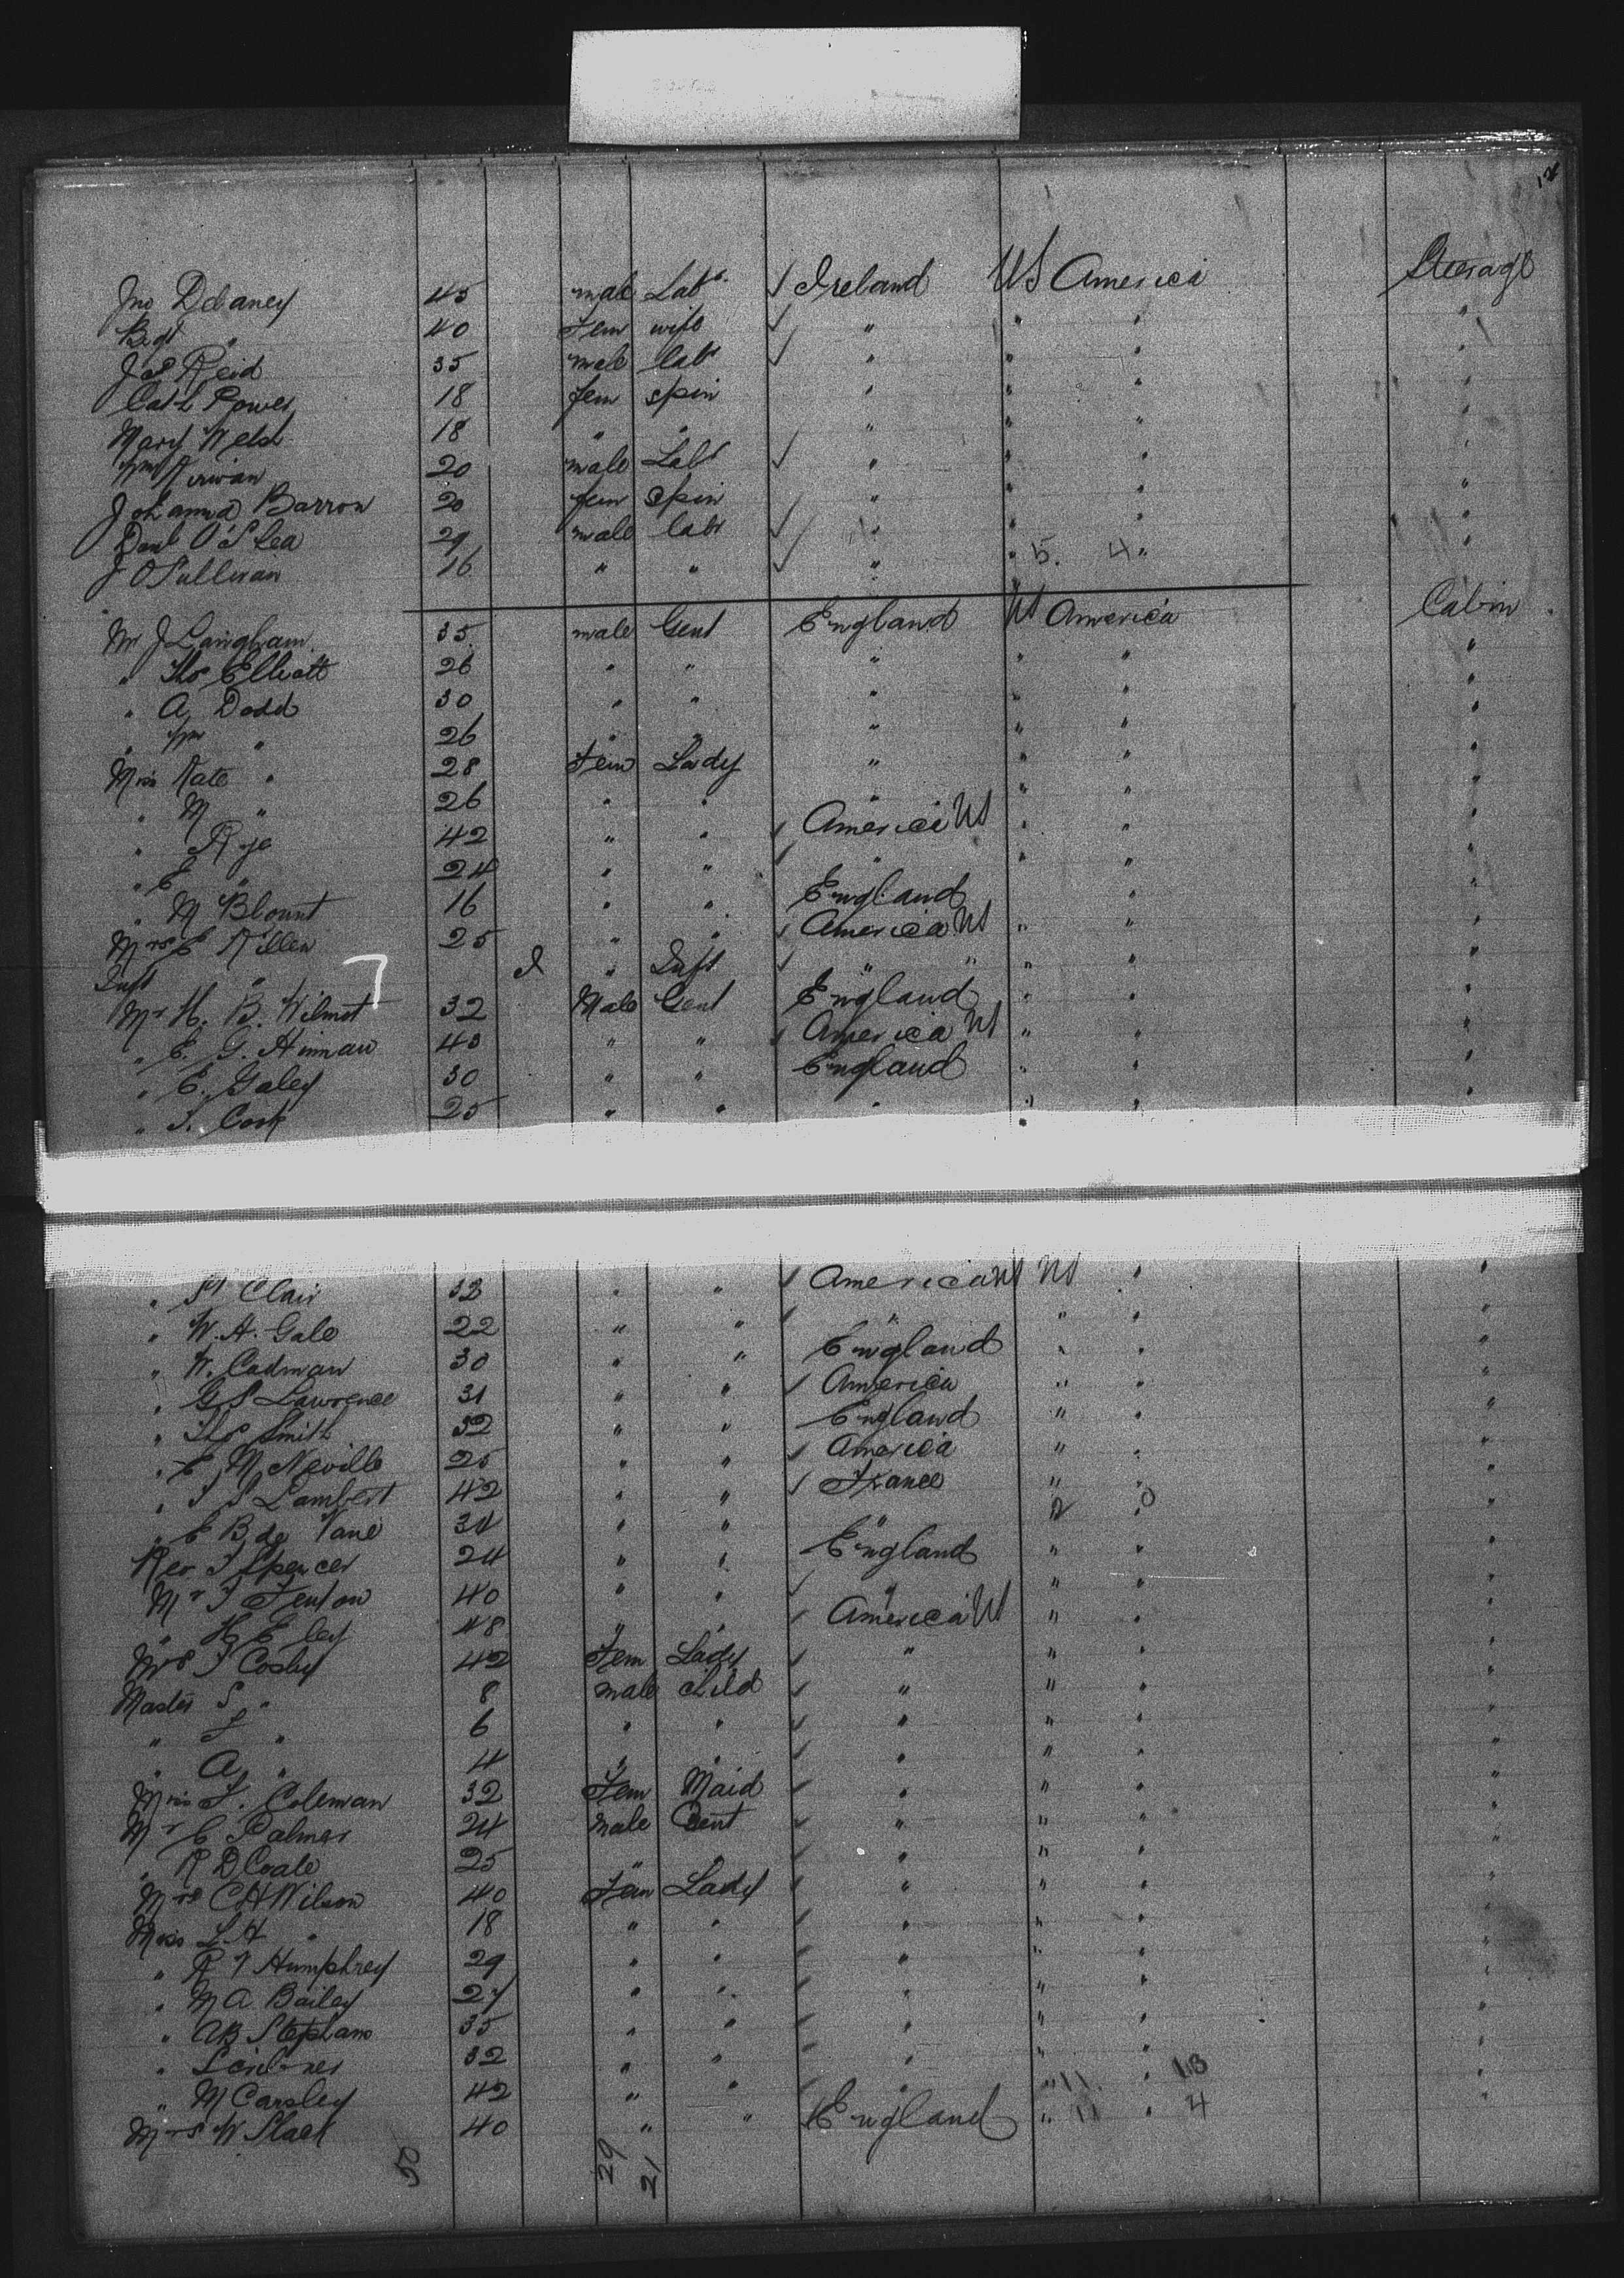 Jno Delaney 45 male Labr Ireland US America Steerage
Bgt " 40 Fem wife " " " "
Jas Reid 35 male labr " " " "
Cath Power 18 fem spin " " " "
Mary Welsh 18 " " " " " "
Wm Kirwan 20 male Labr " " " "
Johanna Barron 20 fem spin " " " "
Danl O'Shea 29 male labr " " " "
J OSullivan 16 " " " " 5. 4 " "
Mr J Langham 35 male Gent England US America Cabin
" Thos Elliott 26 " " " " " "
" A Dodd 30 " " " " " "
" Wm " 26 " " " " " "
Miss Kate " 28 Fem Lady " " " "
" M " 26 " " " " " "
" Rye 42 " " America US " " "
" E " 24 " " " " " "
" M Blount 16 " " England " "
Mrs E Killen 25 " " America US " " "
Inft " " Inft " " " " "
Mr H. B. Wilmot 32 Male Gent England " " "
" E. G. Hinman 43 " " America US " " "
" E. Galey 30 " " England " " "
" T. Cook 25 " " " " " "
" St Clair 32 " " America US US " "
" W. A. Gale 22 " " " " " "
" W. Cadman 30 " " England " " "
" G S Lawrence 31 " " America " "
" Thos Smith 32 " " England " " "
" E M Neville 25 " " America " " "
" T S Lambert 42 " " France " " "
" E B de Vane 34 " " " " "
Rev T Spencer 24 " " England " " "
Mr T Fenton 40 " " " " " "
" H E ley 48 " " America US " " "
Mrs T Cosby 42 Fem Lady " " " "
Master S " 8 male child " " " "
" T " 6 " " " " "
" A " 4 " " " " " "
Miss L. Coleman 32 Fem Maid " " " "
Mr C Palmer 24 male Gent " " " "
" R D Coale 25 " " " " "
Mrs C H Wilson 40 Fem Lady " " " "
Miss L A " 18 " " " " " "
" R V Humphrey 29 " " " " " "
" M A Bailey 27 " " " " " "
" AB Stephans 35 " " " " "
" Scribner 32 " " " " " "
" M Carsley 42 " " " " 11. " 13 "
Mrs W Slack 40 " " England " 11 " 4 "
50 29 21